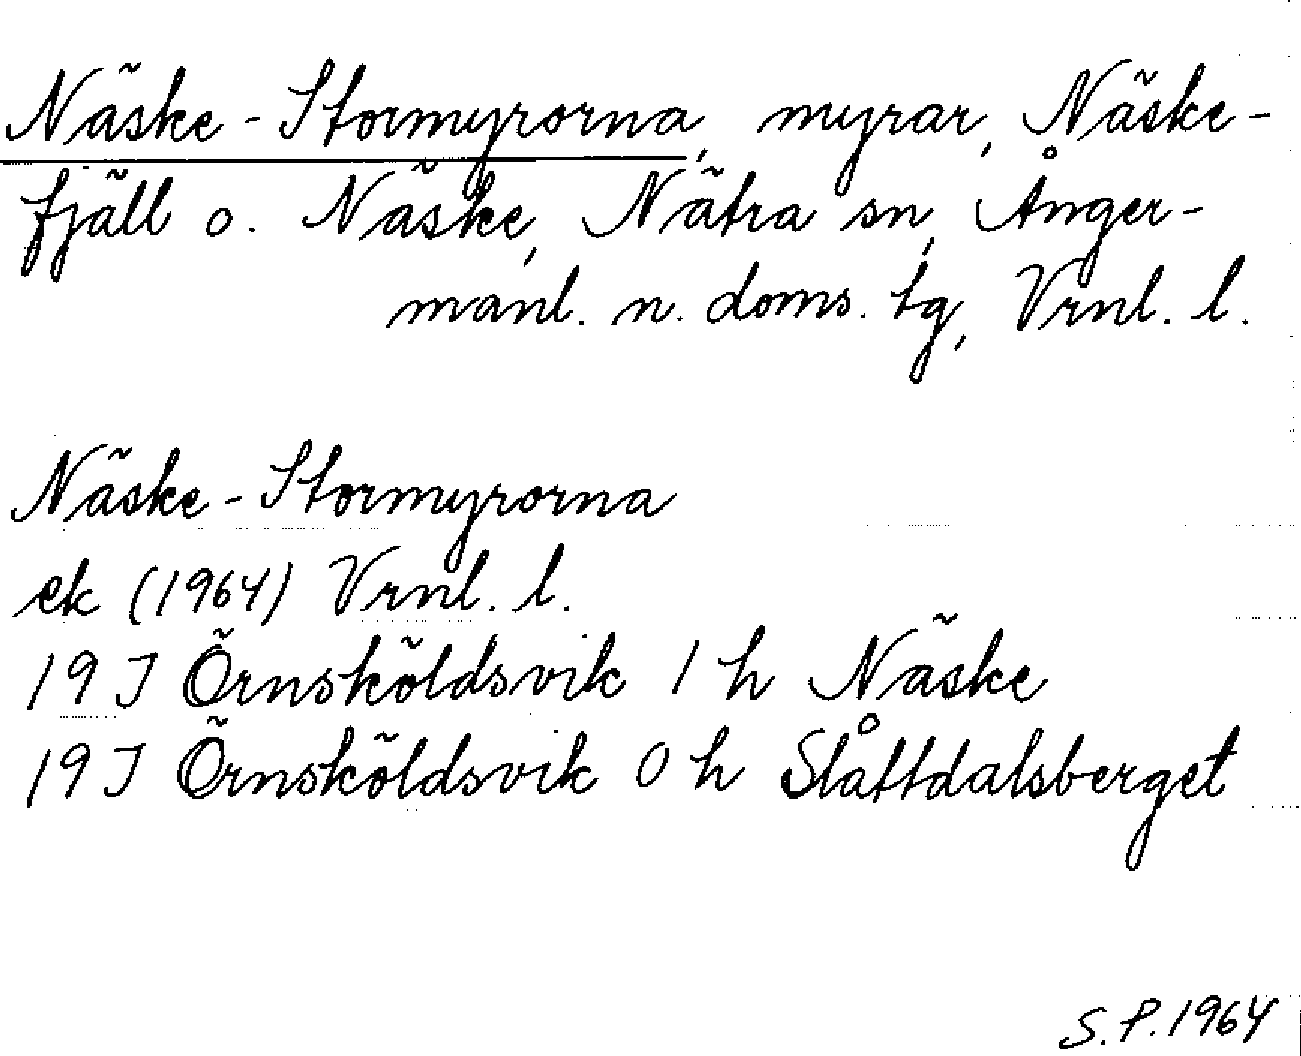 Näske-Stormyrorna, myrar, Näske-
fjäll o. Näske, Nätra sn, Ånger-
manl. n. doms. tg, Vrnl. l.
Näske-Stormyrorna
ek (1964) Vrnl. l.
19J Örnsköldsvik 1 h Näske
19J Örnsköldsvik 0 h Slåttdalsberget
S.P. 1964